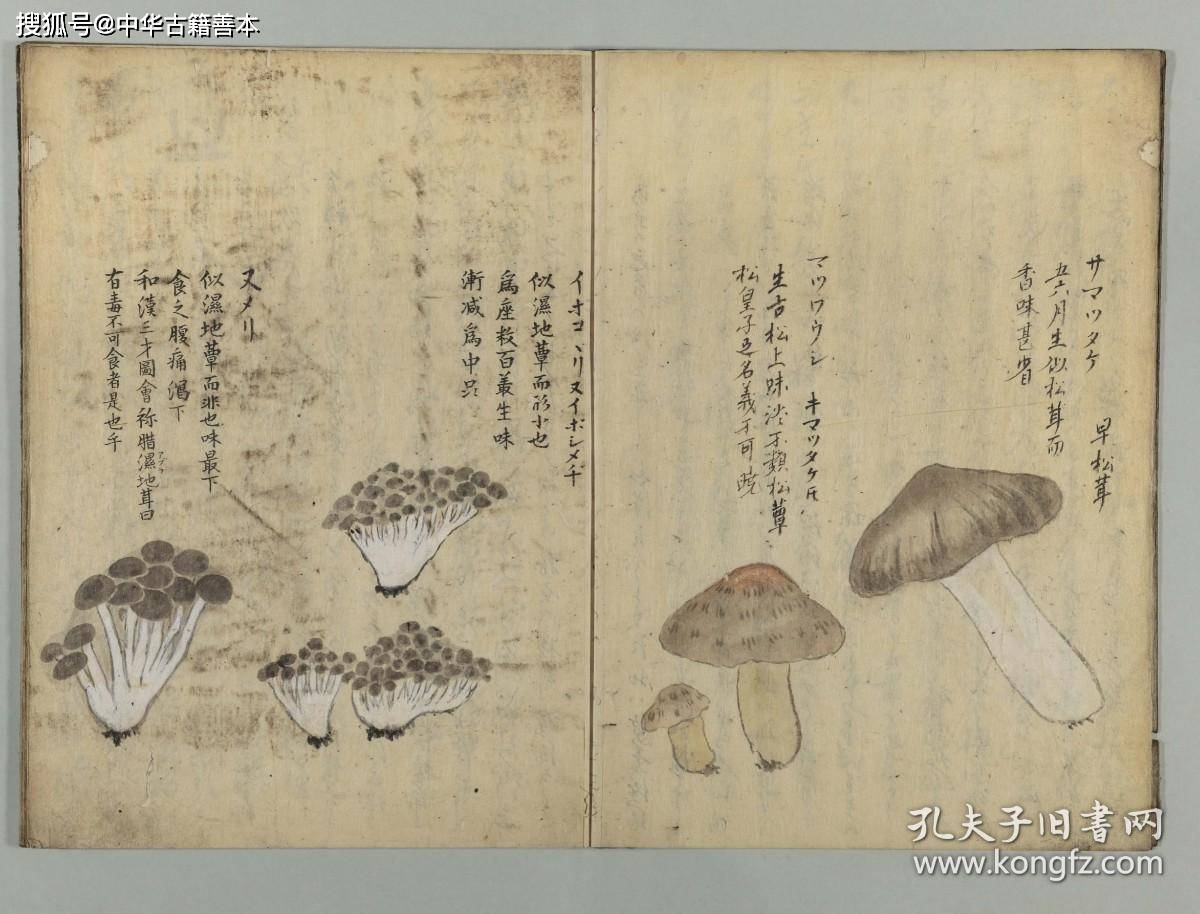 搜狐号@中华古籍善本
サマツタケ 早松茸
五六月生似松茸而
香味甚省
マツワウシ キマツタケ氏
生古松上味淡不類松蕈
松皇子之名義不可暁
イオコヽリ又イボシメヂ
似濕地蕈而形小也
為座数百叢生味
漸减為中品
又メリ
似濕地蕈而非也味最下
食之腹痛瀉下
和漢三才圖會称腊濕地茸曰
アブラ
有毒不可食者是也乎
孔夫子旧书网
www.kongfz.com